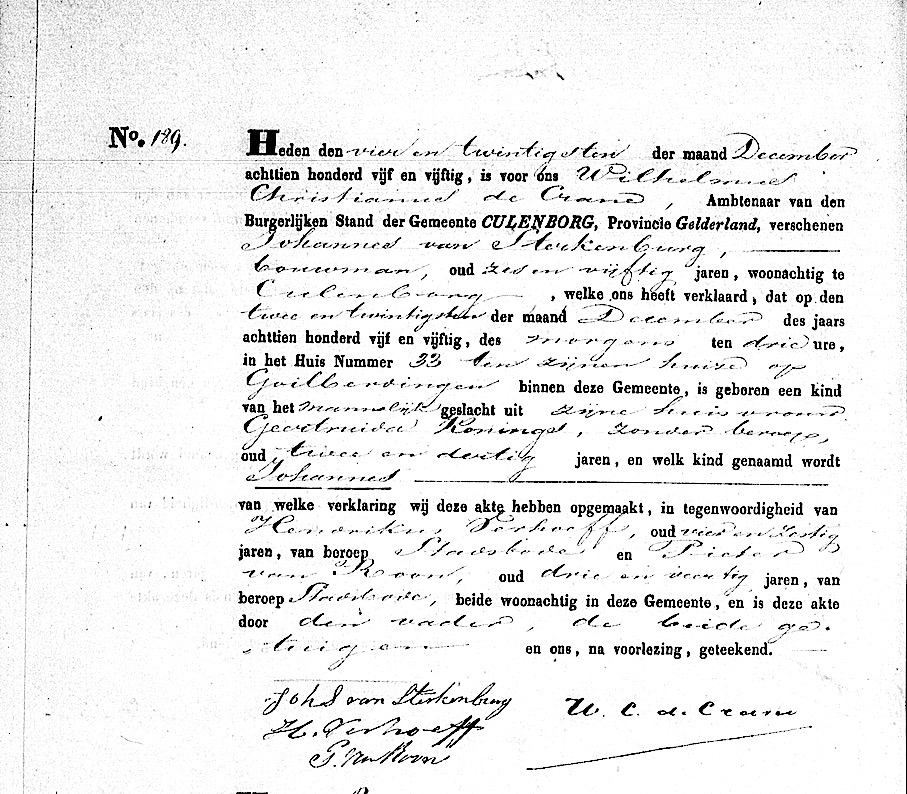 No. 189.
Heden den vier en twintigsten der maand December
achttien honderd vijf en vijftig, is voor ons Wilhelmus
Christianus de Crane, Ambtenaar van den
Burgerlijken Stand der Gemeente CULENBORG, Provincie Gelderland, verschenen
Johannes van Sterkenburg,
bouwman, oud zes en vijftig jaren, woonachtig te
Culenborg, welke ons heeft verklaard, dat op den
twee en twintigsten der maand December des jaars
achttien honderd vijf en vijftig, des morgens ten drie ure,
in het Huis Nummer 33 ten zijnen huize op
Goilberdingen binnen deze Gemeente, is geboren een kind
van het mannelijk geslacht uit zijne huisvrouw
Geertruida Konings, zonder beroep,
oud twee en dertig jaren, en welk kind genaamd wordt
Johannes
van welke verklaring wij deze akte hebben opgemaakt, in tegenwoordigheid van
Hendrikus Verhoeff, oud vier en zestig
jaren, van beroep Stadsbode en Pieter
van Roon, oud drie en veertig jaren, van
beroep Stadsbode, beide woonachtig in deze Gemeente, en is deze akte
door den vader, de beide ge-
tuigen en ons, na voorlezing, geteekend.
Joh S van Sterkenburg
W. C. de Crane
H. Verhoeff
P. van Roon